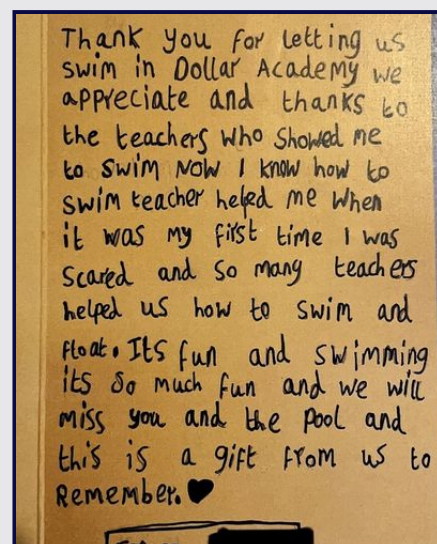 Thank you for letting us
swim in Dollar Academy we
appreciate and thanks to
the teachers who showed me
to swim now I know how to
swim teacher helped me when
it was my first time I was
scared and so many teachers
helped us how to swim and
float. Its fun and swimming
its so much fun and we will
miss you and the pool and
this is a gift from us to
Remember.